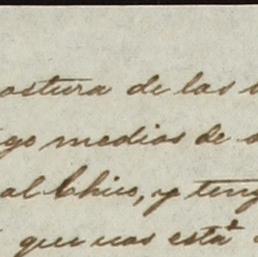 ostura de las
go medios de
al Chico, y teng
que nos está